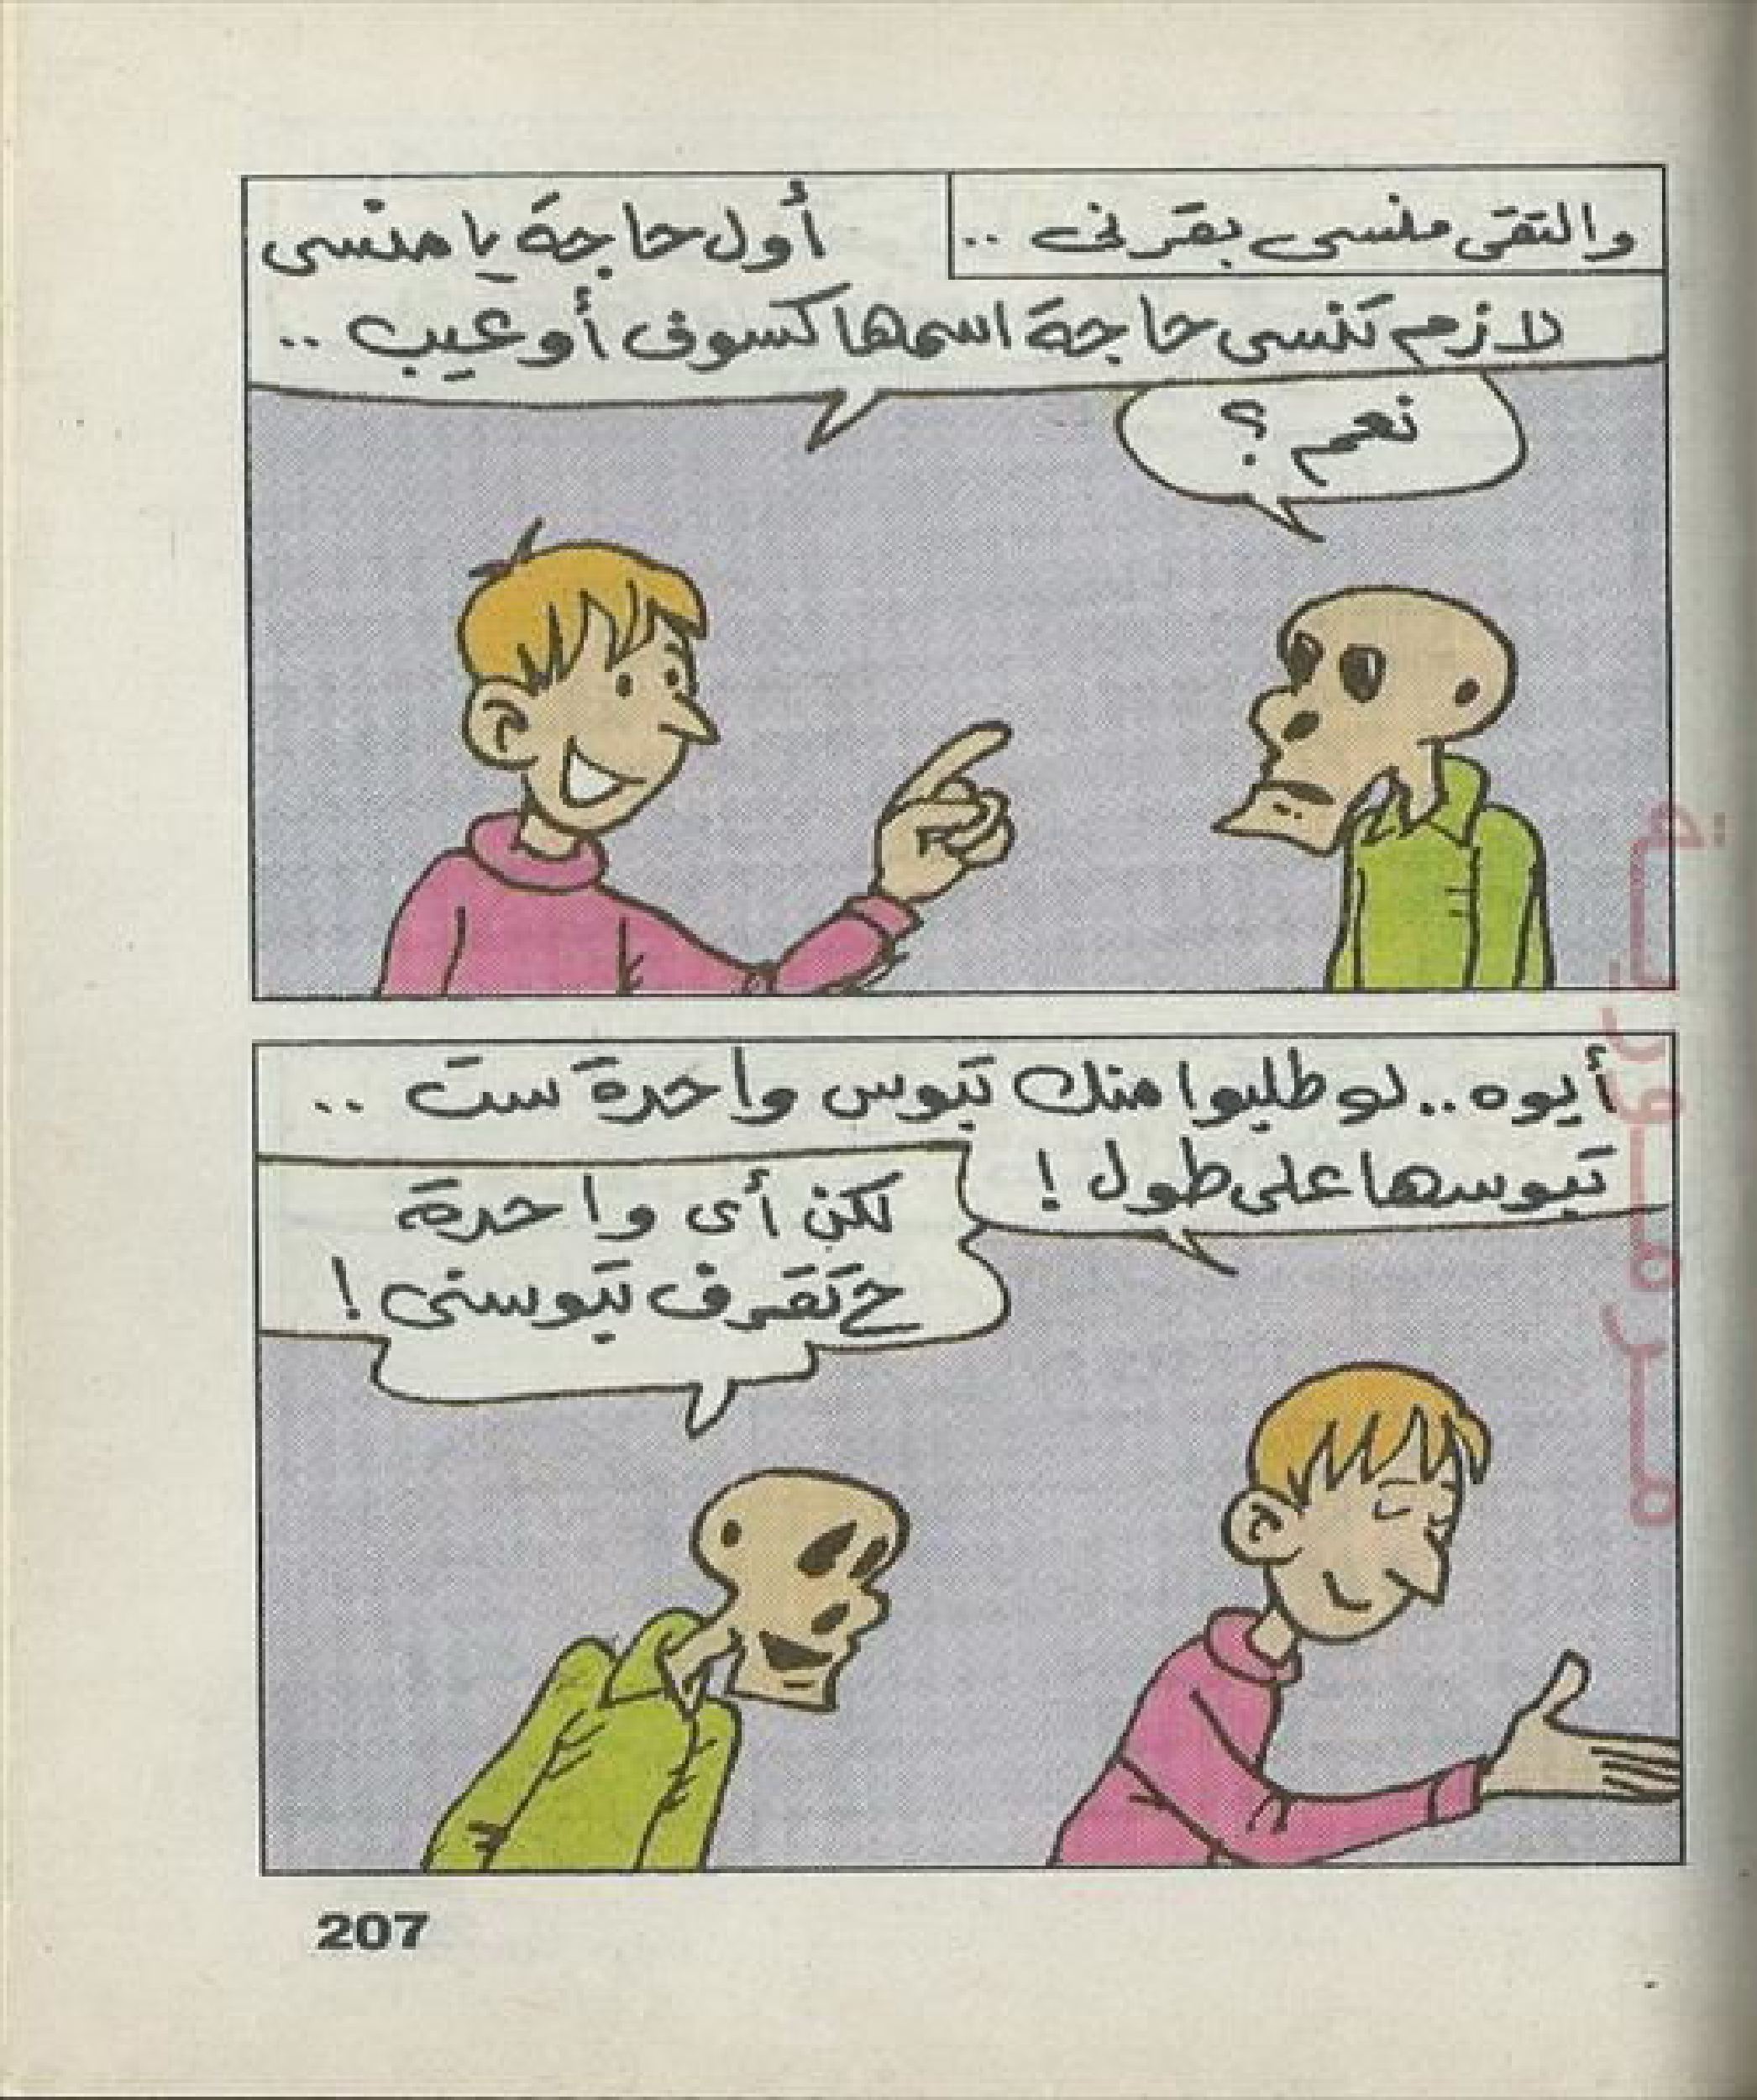 والتقى منسى بقرنى ..
أول حاجة يا منسى
لازم تنسى حاجة اسمها كسوف أو عيب ..
نعم ؟
أيوه .. لو طلبوا منك تبوس واحدة ست ..
تبوسها على طول !
لكن أى واحدة
ح تقرف تبوسنى !
مرمورية
207